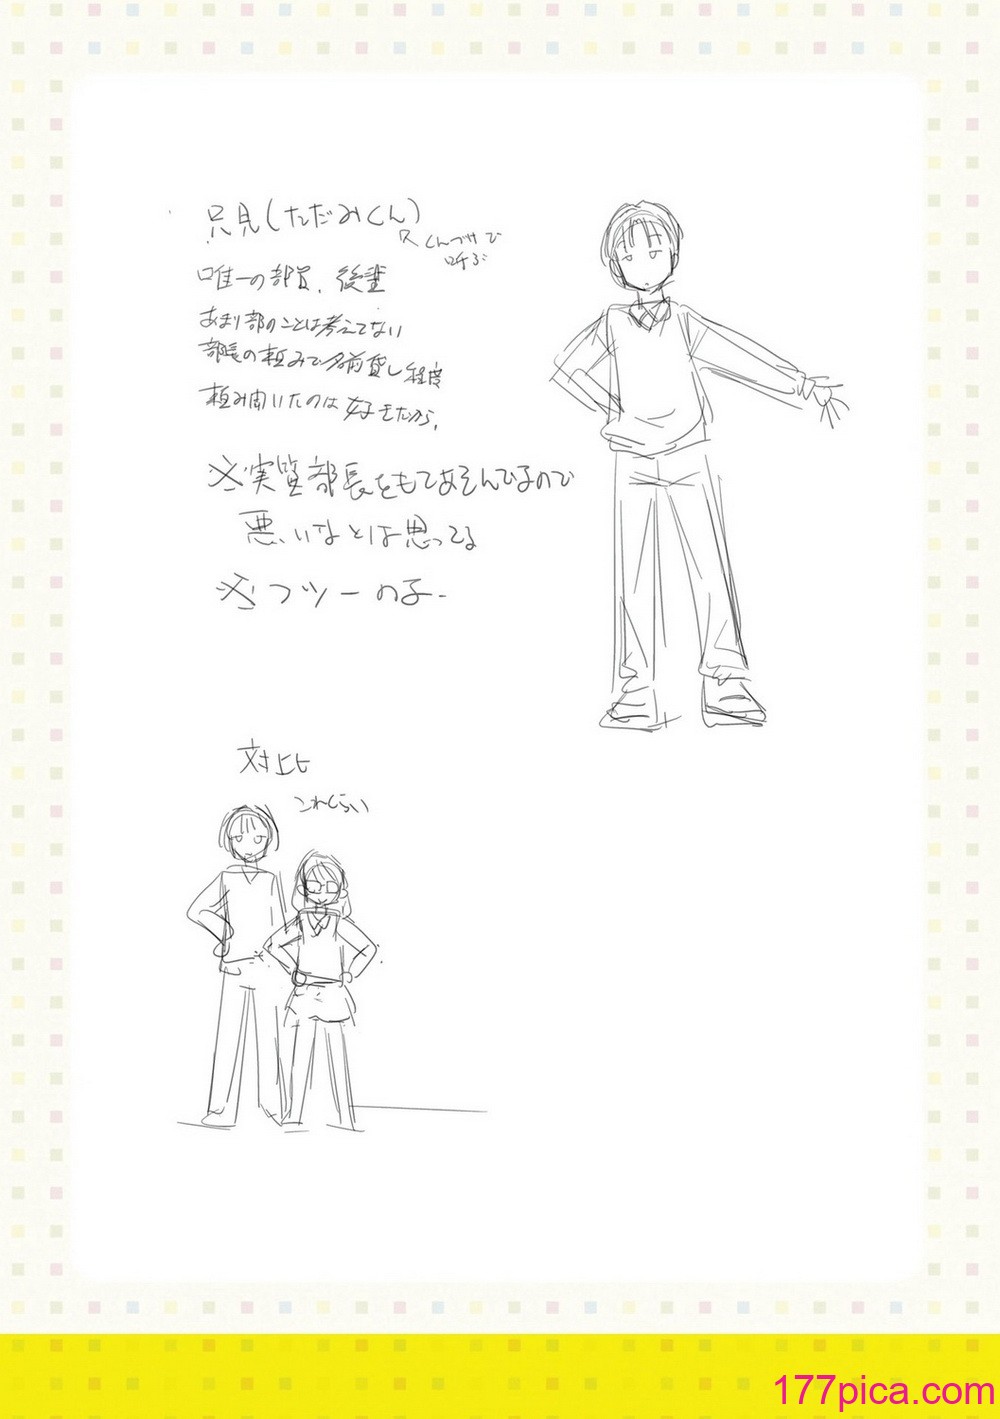 只見(ただみくん)
くんづけで
呼ぶ
唯一の部員、後輩
あまり部のことは考えてない
部長の頼みで名前貸し程度
頼み聞いたのは好きだから。
※実質部長をもてあそんでるので
悪いなとは思ってる
※フツーの子-
対比
これくらい
177pica.com